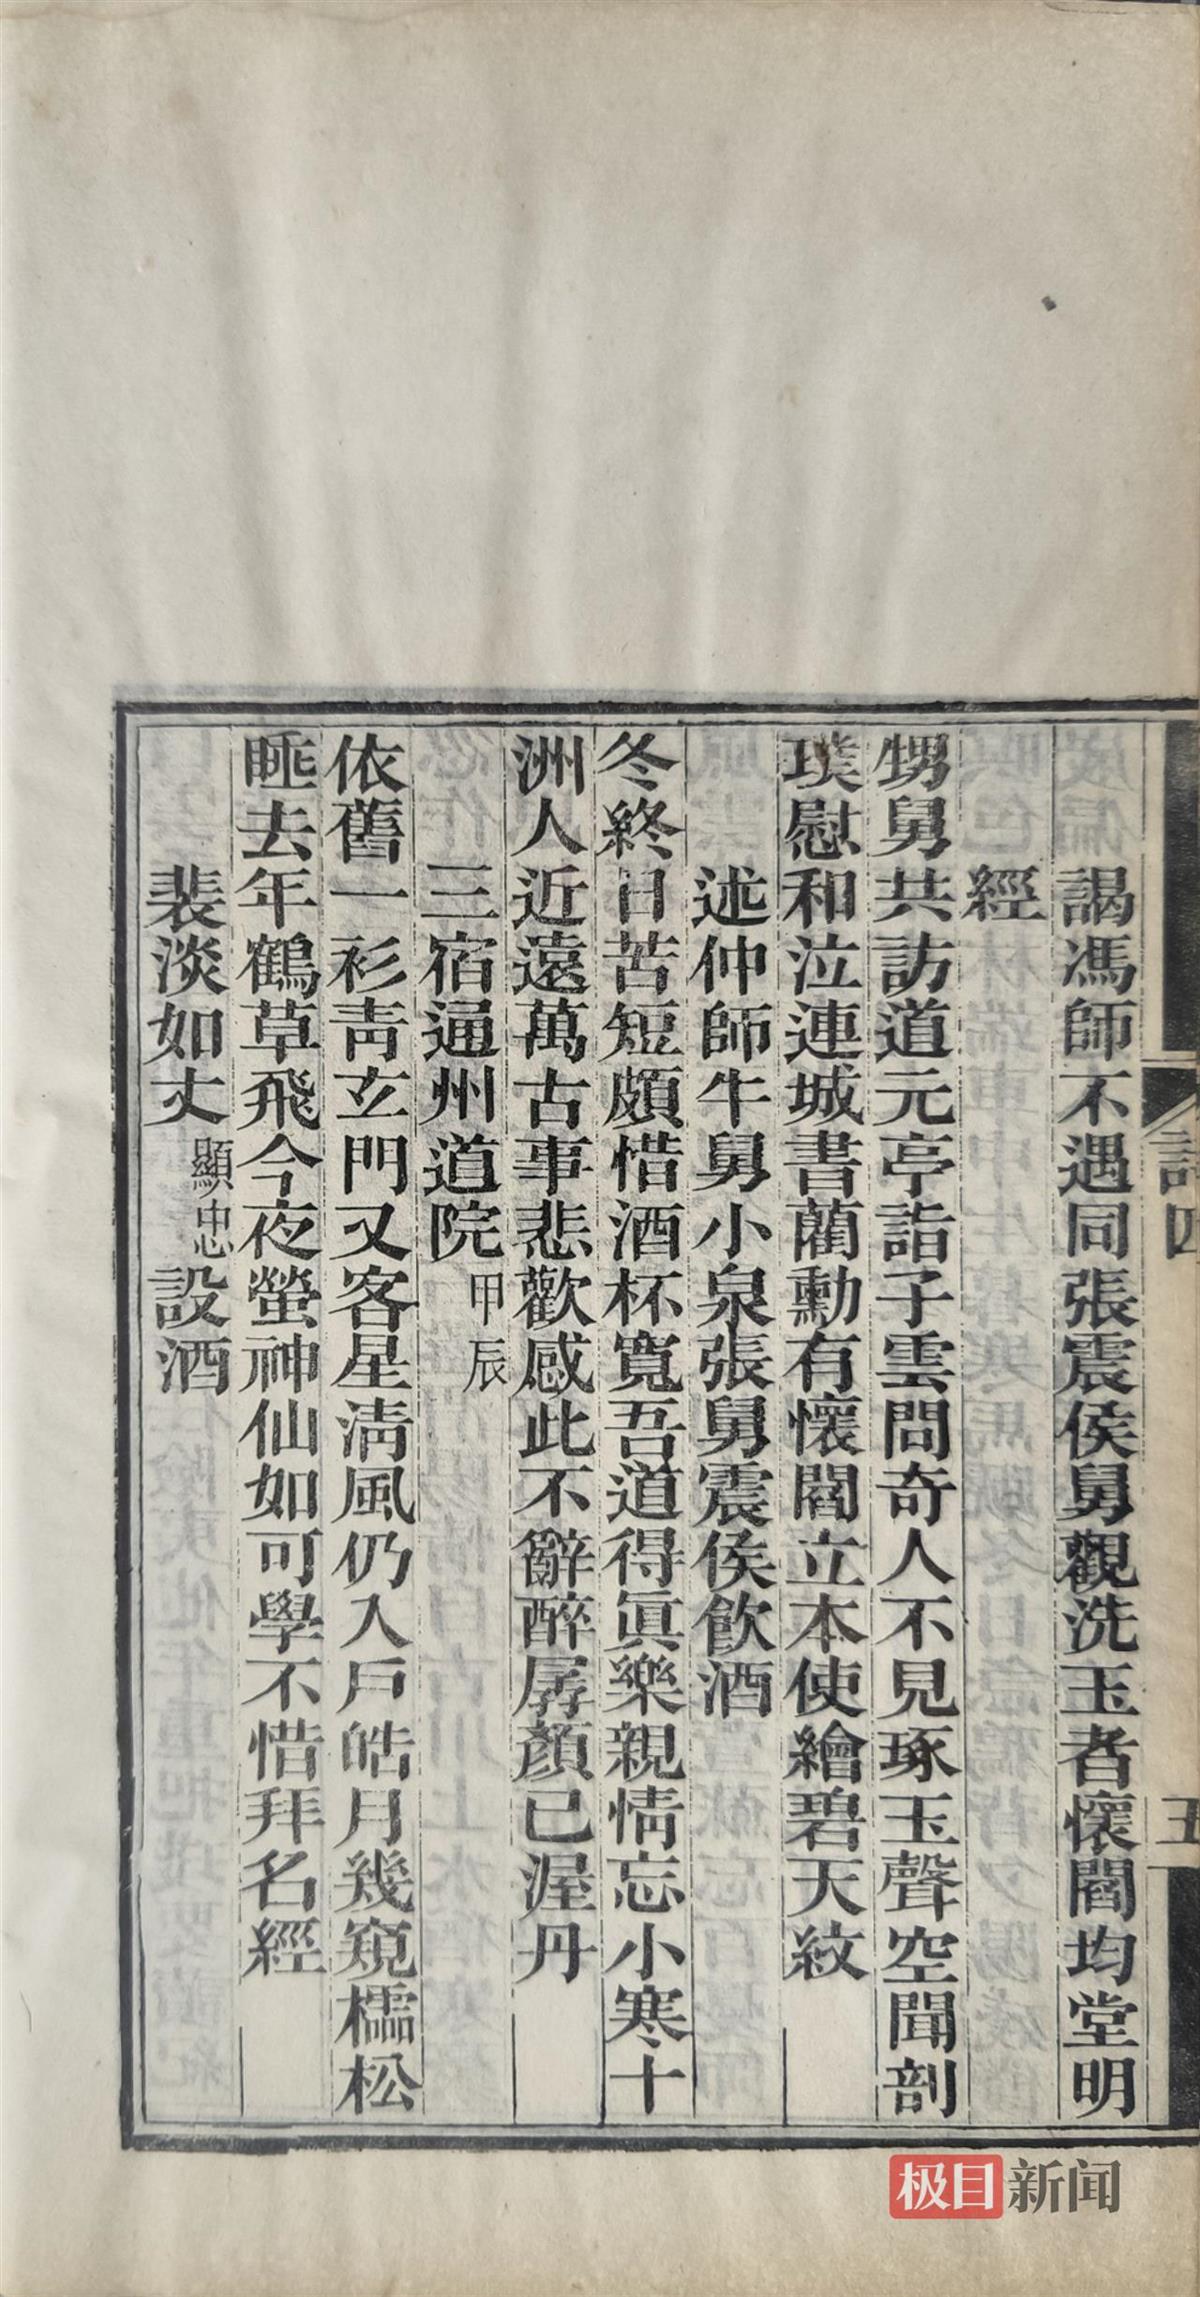 謁馮師不遇同張震侯舅觀洗玉者懷閻均堂明
經
甥舅共訪道元亭詣子雲問奇人不見琢玉聲空聞剖
璞慰和泣連城書藺勳有懷閻立本使繪碧天紋
述仲師牛舅小泉張舅震侯飲酒
冬終日苦短頗惜酒杯寬吾道得眞樂親情忘小寒十
洲人近遠萬古事悲歡感此不辭醉孱顏已渥丹
三宿通州道院甲辰
依舊一衫靑玄門又客星淸風仍入戶皓月幾窺櫺松
睡去年鶴草飛今夜螢神仙如可學不惜拜名經
裴淡如丈顯忠設酒
四
五
极目新闻